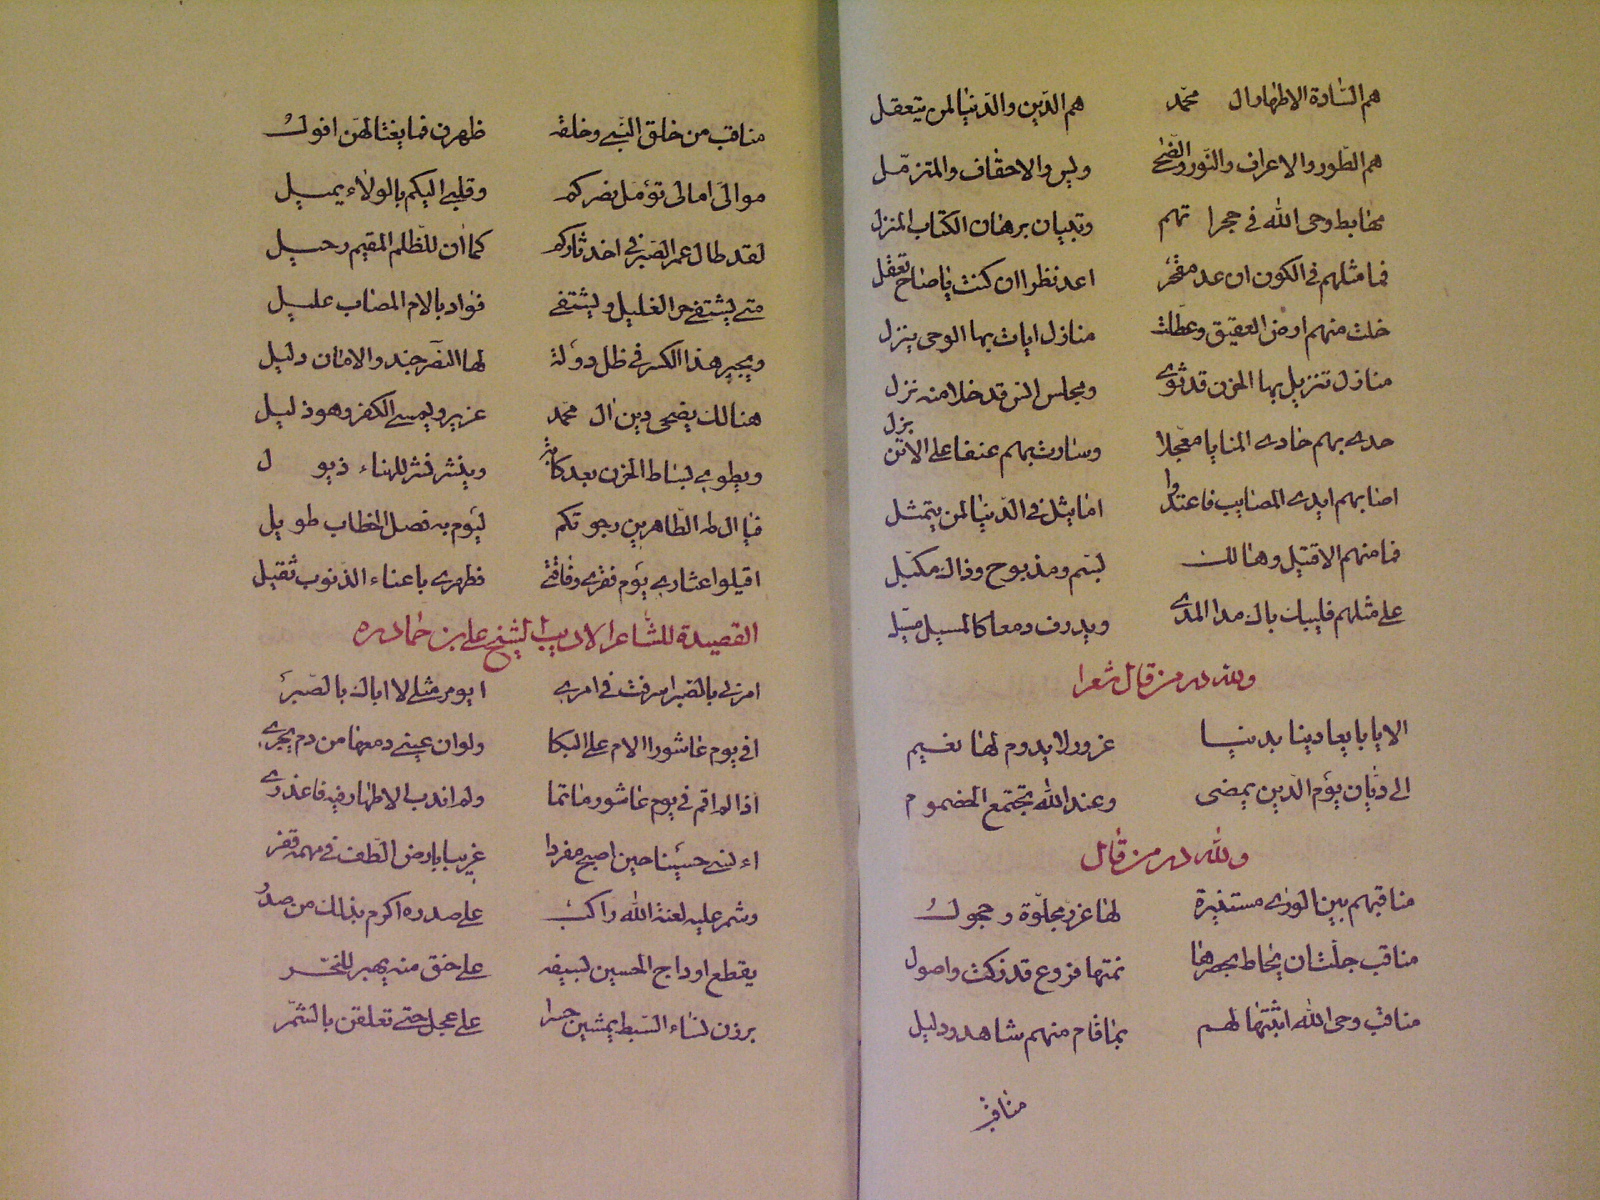 هم السادة الاطهار ال محمد هم الدين والدنيا لمن يتعقل
هم الطور والاعراف والنور والضحى ويس والاحقاف والمتزمل
مهابط وحى الله فى حجراتهم وتبيان برهان الكتاب المنزل
فما مثلهم فى الكون ان عد مفخر اعد نظرا ان كنت يا صاح تعقل
خلت منهم ارض العقيق وعطلت منازل ايات بها الوحى ينزل
منازل تنزيل بها الحزن قد ثوى ومجلس انس قد خلا منه نزل
حدى بهم حادى المنايا معجلا وسارت بهم عنفا على الاتن بزل
اصابهم ايدى المصايب فاعتدوا امايثل فى الدنيا لمن يتمثل
فما منهم الا قتيل وهالك بسم ومذبوح وذاك مكبل
على مثلهم فليبك باك مدا المدى ويدرف دمعا كالمسيل مسيل
ولله در من قال شعرا
الا يا بايعا دينا بدنيا غرور لا يدوم لها نعيم
الى ديان يوم الدين يمضى وعند الله تجتمع الخضموم
ولله در من قال
مناقبهم بين الورى مستنيرة لها غرر مجلوة وحجول
مناقب جلت ان يحاط بحصرها نمتها فروع قد زكت واصول
مناقب وحى الله اثبتها لهم بما قام منهم شاهد ودليل
مناقب
مناقب من خلق النبى وخلقه ظهرن فما يغتالهن افول
موالى امالى تؤمل نصركم وقلبى اليكم بالولاء يميل
لقد طال عمر الصبر فى اخذ ثاركم كما ان للظلم المقيم رحيل
متى يشتفى حر الغليل ويشتفى فؤاد بالام المصاب عليل
ويجبر هذا الكسر فى ظل دولة لها النصر جند والامان دليل
هنالك يضحى دين ال محمد عزيز ويمسى الكفر وهو ذليل
ويطوى بساط الحزن بعد كابة وينشر نشر للهناء ذيول
فيا ال طه الطاهرين رجوتكم ليوم به فصل الخطاب طويل
اقيلوا عثارى يوم فقرى وفاقتى فظهرى باعباء الذنوب ثقيل
القصيدة للشاعر الاديب الشيخ على بن حماد ره
امرنى بالصبر اسرفت فى امرى ايومر مثلى لا ابا لك بالصبر
افى يوم عاشورا الام على البكا ولو ان عينى دمعها من دم يجرى
اذا لم اقم فى يوم عاشور ماتما ولم اندب الاطهار فيه فاعذرى
اءنسى حسينا حين اصبح مفردا غريبا بارض الطف فى مهمه قفر
وشمر عليه لعنة الله راكب على صدره اكرم بذلك من صدر
يقطع اوداج الحسين بسيفه على حنق منه يهبر للنحر
برزن نساء السبط يمشين حسرا على عجل حتى تعلقن بالشمر